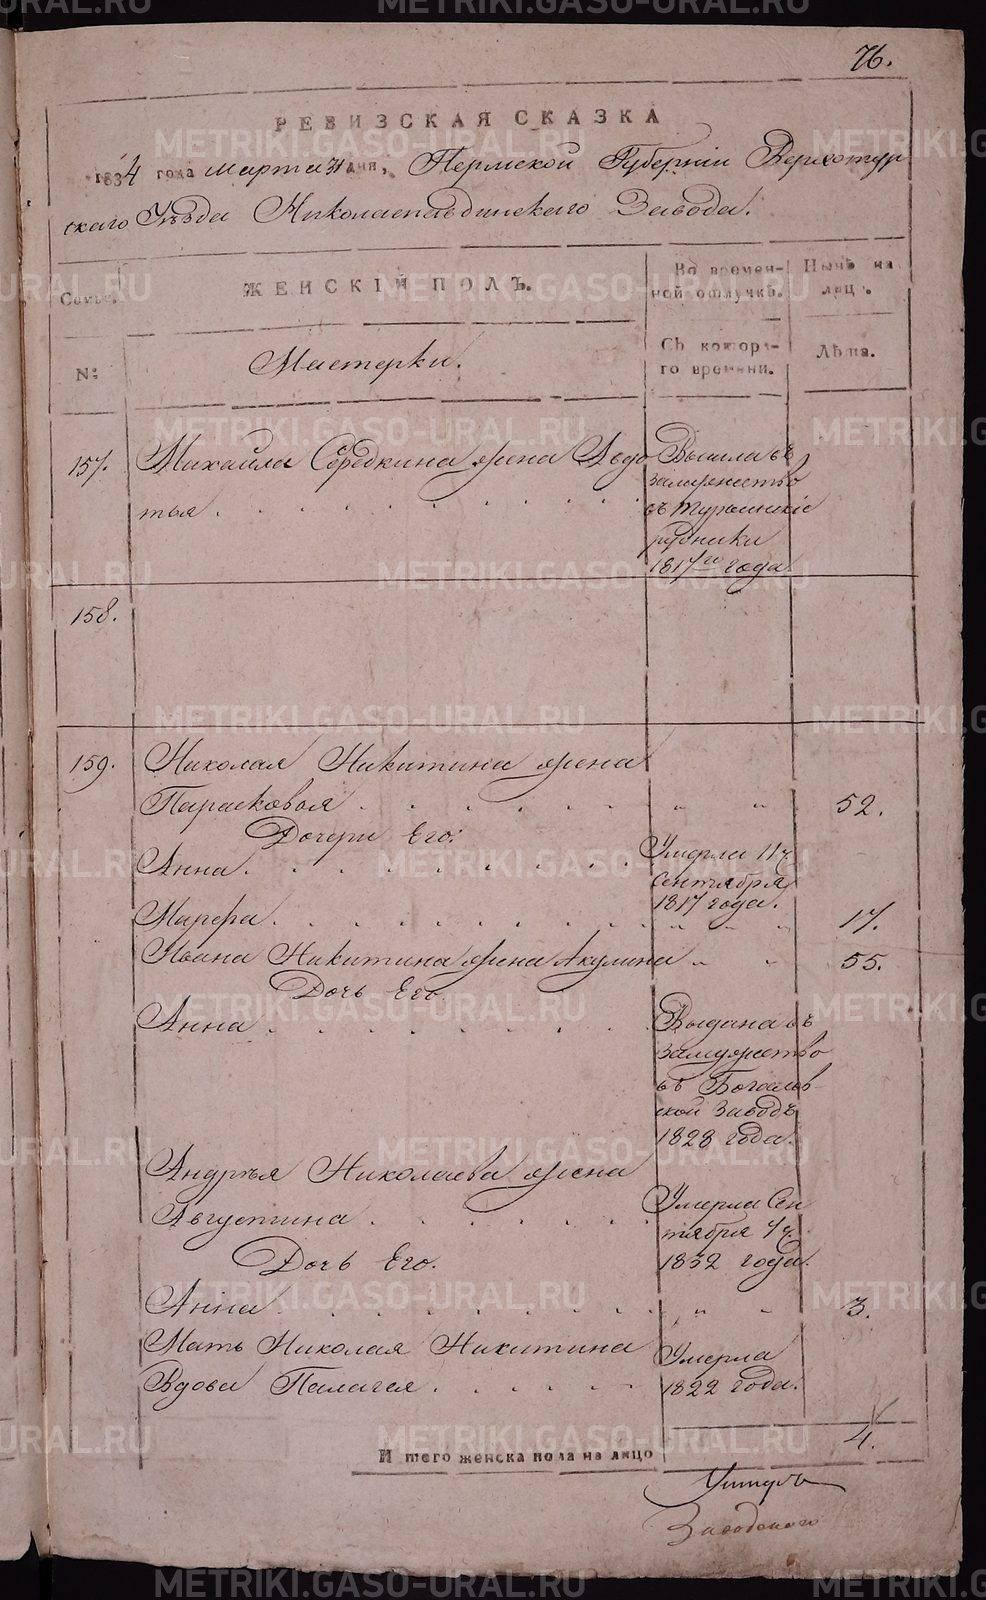 76.
РЕВИЗСКАЯ СКАЗКА
1834 года марта дня, Пермской Губернiи Верхотур
скаго Уѣзда Николаепавдинскаго Завода.
Семьи.
ЖЕНСКIЙ ПОЛЪ.
Во времен-
ной отлучкѣ.
Нынѣ на
лицѣ.
№
Мастерки.
Съ которa-
го времени.
Лѣта.
157. Михайла Середкина жена Авдо
тья
Вышла въ
замужество
въ Турьинскiе
рудники
1817го года.
158.
159. Николая Никитина жена
Парасковья 52.
Дочери Его:
Анна. Умерла 11ч
сентября
1817 года.
Марфа. 17.
Ивана Никитина жена Акулина 55.
Дочь Его.
Анна. Выдана въ
замужество
въ Богослов-
ской Заводъ
1828 года.
Андрѣя Николаева жена
Августина Умерла Сен
тября 4ч.
1832 года.
Дочь Его.
Анна. 3.
Мать Николая Никитина
Вдова Палагея. Умерла
1822 года.
И того женска пола на лицо 4.
Заводскаго
METRIKI.GASO-URAL.RU